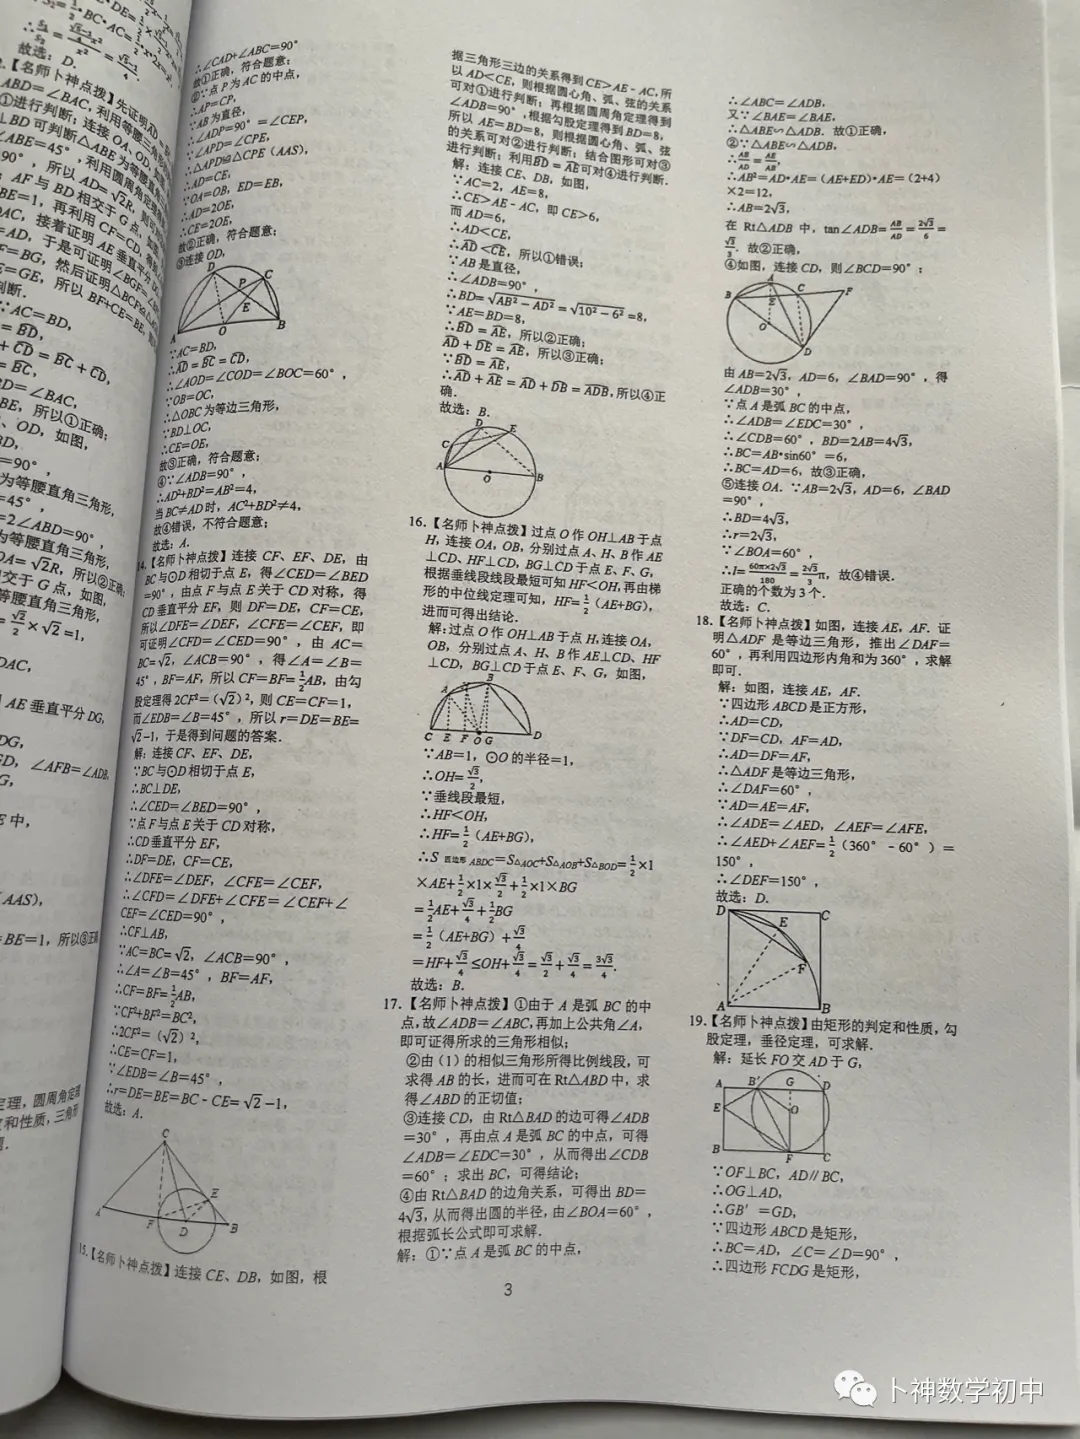 ∴∠CAD+∠ABC=90°
故①正确，符合题意；
②∵点P为AC的中点，
∴AP=CP，
∵AB为直径，
∴∠ADP=90°=∠CEP，
∵∠APD=∠CPE，
∴△APD≌△CPE（AAS），
∴AD=CE，
∵OA=OB，ED=EB，
∴AD=2OE，
∴CE=2OE，
故②正确，符合题意；
③连接OD，
∵AC=BD，
∴AD=BC=CD，
∴∠AOD=∠COD=∠BOC=60°，
∵OB=OC，
∴△OBC为等边三角形，
∵BD⊥OC，
∴CE=OE，
故③正确，符合题意；
④∵∠ADB=90°，
∴AD²+BD²=AB²=4，
当BC≠AD时，AC²+BD²≠4，
故④错误，不符合题意；
故选：A.
14.【名师卜神点拨】连接CF、EF、DE，由
BC与⊙D相切于点E，得∠CED=∠BED
=90°，由点F与点E关于CD对称，得
CD垂直平分EF，则DF=DE，CF=CE，
所以∠DFE=∠DEF，∠CFE=∠CEF，即
可证明∠CFD=∠CED=90°，由AC=
BC=√2，∠ACB=90°，得∠A=∠B=
45°，BF=AF，所以CF=BF=1/2AB，由勾
股定理得2CF²=(√2)²，则CE=CF=1，
而∠EDB=∠B=45°，所以r=DE=BE=
√2-1，于是得到问题的答案.
解：连接CF、EF、DE，
∵BC与⊙D相切于点E，
∴BC⊥DE，
∴∠CED=∠BED=90°，
∵点F与点E关于CD对称，
∴CD垂直平分EF，
∴DF=DE，CF=CE，
∴∠DFE=∠DEF，∠CFE=∠CEF，
∴∠CFD=∠DFE+∠CFE=∠CEF+∠
CEF=∠CED=90°，
∴CF⊥AB，
∵AC=BC=√2，∠ACB=90°，
∴∠A=∠B=45°，BF=AF，
∴CF=BF=1/2AB，
∵CF²+BF²=BC²，
∴2CF²=(√2)²，
∴CE=CF=1，
∵∠EDB=∠B=45°，
∴r=DE=BE=BC-CE=√2-1，
故选：A.
15.【名师卜神点拨】连接CE、DB，如图，根
据三角形三边的关系得到CE>AE-AC，所
以AD<CE，则根据圆心角、弧、弦的关系
可对①进行判断；再根据圆周角定理得到
∠ADB=90°，根据勾股定理得到BD=8，
所以AE=BD=8，则根据圆心角、弧、弦
的关系可对②进行判断；结合图形可对③
进行判断；利用BD=AE可对④进行判断.
解：连接CE、DB，如图，
∵AC=2，AE=8，
∴CE>AE-AC，即CE>6，
而AD=6，
∴AD<CE，
∴AD<CE，所以①错误；
∵AB是直径，
∴∠ADB=90°，
∴BD=√(AB²-AD²)=√(10²-6²)=8，
∵AE=BD=8，
∴BD=AE，所以②正确；
AD+DE=AE，所以③正确；
∵BD=AE，
∴AD+AE=AD+DB=ADB，所以④正
确.
故选：B.
16.【名师卜神点拨】过点O作OH⊥AB于点
H，连接OA，OB，分别过点A、H、B作AE
⊥CD、HF⊥CD，BG⊥CD于点E、F、G，
根据垂线段线段最短可知HF<OH，再由梯
形的中位线定理可知，HF=1/2（AE+BG），
进而可得出结论.
解：过点O作OH⊥AB于点H，连接OA，
OB，分别过点A、H、B作AE⊥CD、HF
⊥CD，BG⊥CD于点E、F、G，如图，
∵AB=1，⊙O的半径=1，
∴OH=√3/2，
∵垂线段最短，
∴HF<OH，
∴HF=1/2（AE+BG），
∴S四边形ABDC=S△AOC+S△AOB+S△BOD=1/2×1
×AE+1/2×1×√3/2+1/2×1×BG
=1/2AE+√3/4+1/2BG
=1/2（AE+BG）+√3/4
=HF+√3/4≤OH+√3/4=√3/2+√3/4=3√3/4.
故选：B.
17.【名师卜神点拨】①由于A是弧BC的中
点，故∠ADB=∠ABC，再加上公共角∠A，
即可证得所求的三角形相似；
②由（1）的相似三角形所得比例线段，可
求得AB的长，进而可在Rt△ABD中，求
得∠ABD的正切值；
③连接CD，由Rt△BAD的边可得∠ADB
=30°，再由点A是弧BC的中点，可得
∠ADB=∠EDC=30°，从而得出∠CDB
=60°；求出BC，可得结论；
④由Rt△BAD的边角关系，可得出BD=
4√3，从而得出圆的半径，由∠BOA=60°，
根据弧长公式即可求解.
解：①∵点A是弧BC的中点，
∴∠ABC=∠ADB，
又∵∠BAE=∠BAE，
∴△ABE∽△ADB．故①正确，
②∵△ABE∽△ADB，
∴AB/AD=AE/AB，
∴AB²=AD•AE=（AE+ED）•AE=（2+4）
×2=12，
∴AB=2√3，
在Rt△ADB中，tan∠ADB=AB/AD=2√3/6=
√3/3．故②正确，
④如图，连接CD，则∠BCD=90°；
由AB=2√3，AD=6，∠BAD=90°，得
∠ADB=30°，
∵点A是弧BC的中点，
∴∠ADB=∠EDC=30°，
∴∠CDB=60°，BD=2AB=4√3，
∴BC=AB•sin60°=6，
∴BC=AD=6，故③正确，
⑤连接OA．∵AB=2√3，AD=6，∠BAD
=90°，
∴BD=4√3，
∴r=2√3，
∵∠BOA=60°，
∴l=60π×2√3/180=2√3/3π，故④错误.
正确的个数为3个.
故选：C.
18.【名师卜神点拨】如图，连接AE，AF．证
明△ADF是等边三角形，推出∠DAF=
60°，再利用四边形内角和为360°，求解
即可.
解：如图，连接AE，AF.
∵四边形ABCD是正方形，
∴AD=CD，
∵DF=CD，AF=AD，
∴AD=DF=AF，
∴△ADF是等边三角形，
∴∠DAF=60°，
∵AD=AE=AF，
∴∠ADE=∠AED，∠AEF=∠AFE，
∴∠AED+∠AEF=1/2（360°-60°）=
150°，
∴∠DEF=150°，
故选：D.
19.【名师卜神点拨】由矩形的判定和性质，勾
股定理，垂径定理，可求解.
解：延长FO交AD于G，
∵OF⊥BC，AD∥BC，
∴OG⊥AD，
∴GB′=GD，
∵四边形ABCD是矩形，
∴BC=AD，∠C=∠D=90°，
∴四边形FCDG是矩形，
3
卜神数学初中